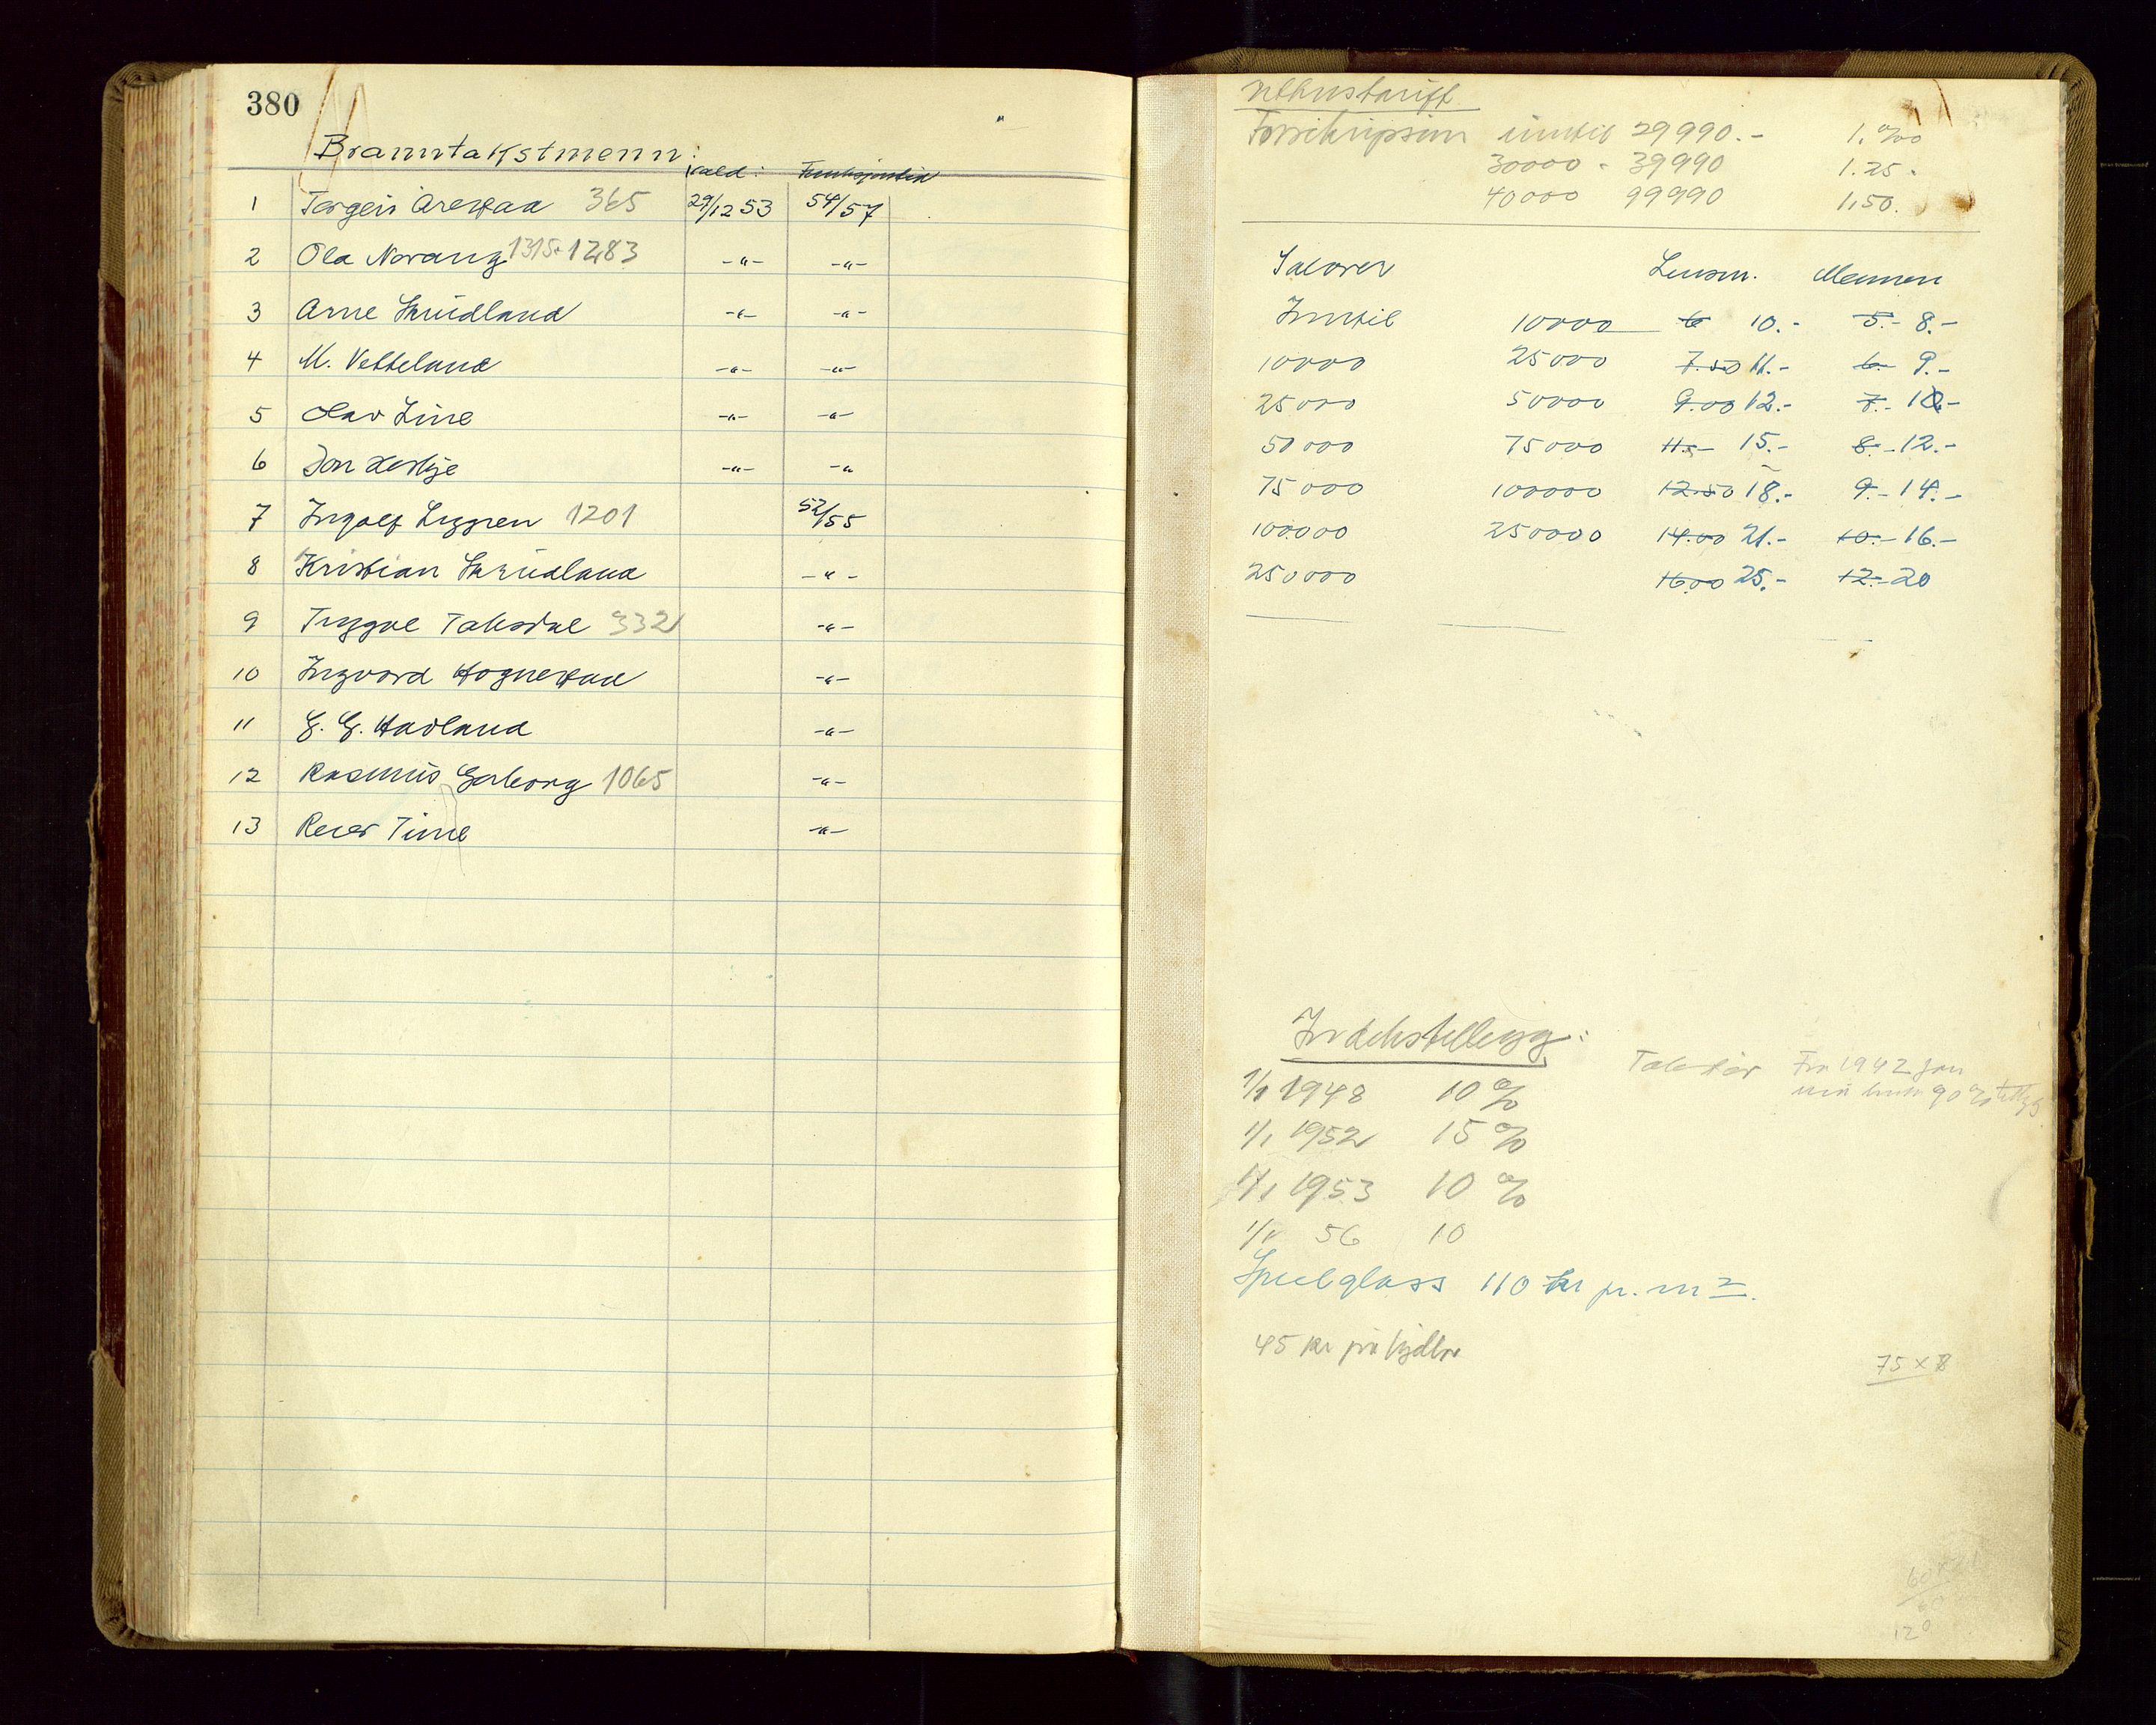 380
Branntakstmenn:
Vald: Funksjonstid
1 Torgeir Årestad 365 29/12 53 54/57
2 Ola Norang 1315+1283 -"- -"-
3 Arne Skrudland -"- -"-
4 M. Vetteland -"- -"-
5 Olav Line -"- -"-
6 Jon Herlje -"- -"
7 Ingolf Lyggren 1201 52/55
8 Kristian Skrudland -"-
9 Tryggve Taksdal 332 -"-
10 Ingvard Hognestad -"-
11 G. G. Havland -"-
12 Rasmus Garborg 1065 -"-
13 Reier Time -"-
Utkustariff
Forsikripsum inntil 29990.- 1.%00
30000 - 39990 1.25.
40000 99990 1,50.
Salærer Lensm. Mennen
Inntil 10000 6 10.- 5.- 8.-
10000 25000 7.50 11.- 6.- 9.-
25000 50000 9.00 12.- 7.- 10.-
50000 75000 11.- 15.- 8.- 12.-
75000 100000 12.50 18.- 9.- 14.-
100000 250000 14.00 21.- 10.- 16.-
250000 16.00 25.- 12.- 20
Indekstillegg:
Takster Fra 1942 Jan
90% tillegg
1/1 1948 10%
1/1 1952 15%
1/1 1953 10%
1/1 56 10
Speilglass 110 kr pr. m2.
45 kr pr
75 x 8
60
120